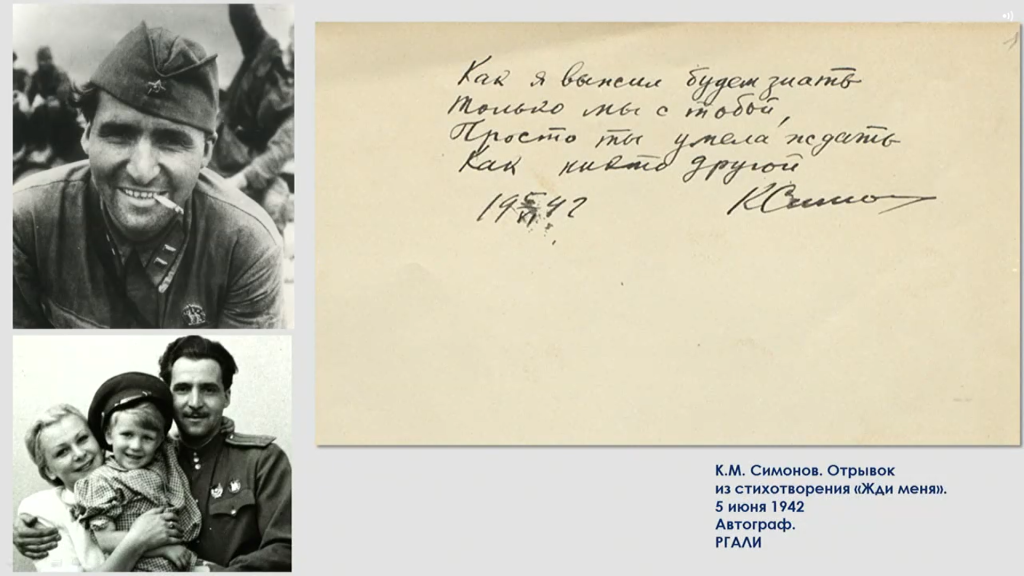 Как я выжил будем знать
только мы с тобой,
Просто ты умела ждать
Как никто другой
19 5/VI 42 КСимо
К.М. Симонов. Отрывок
из стихотворения «Жди меня».
5 июня 1942
Автограф.
РГАЛИ